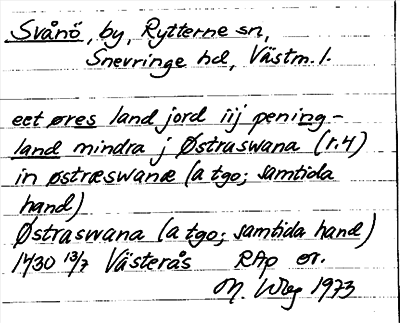 Svånö, by, Rytterne sn,
Snevringe hd, Västm. l.
eet øres land jord iij pening-
land mindra j Østraswana (r. 4)
in østræswanæ (a tgo; samtida
hand)
Østraswana (a tgo; samtida hand)
1430 13/7 Västerås RAp or.
M. Wbg 1973